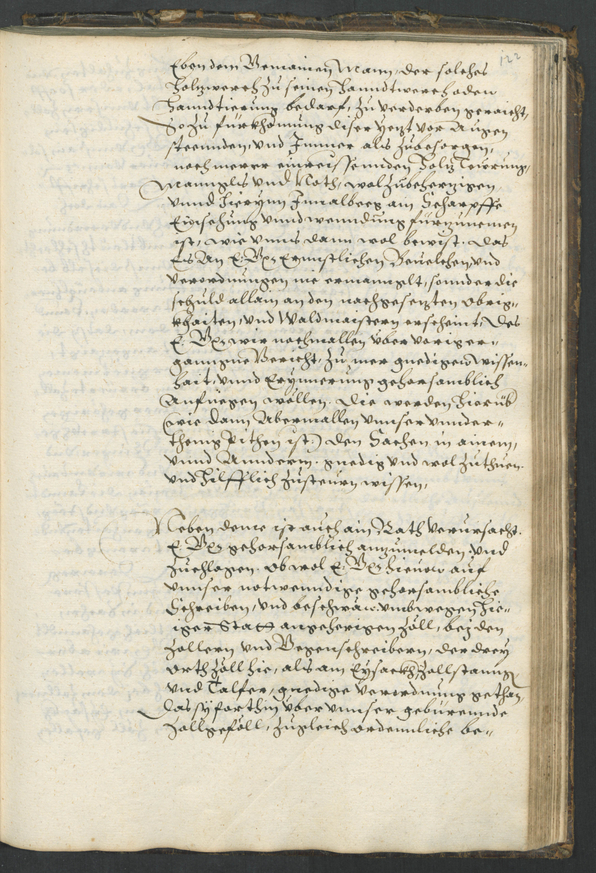 122
Eben dem Gemainen Mann, der solches
Holzwerch zu seinen Hanndtwerch oder
Hanndtierung bedarf, zu verderben geraicht,
So zu fürkhomung diser yezt vor Augen
steennden, und Immer als zubesorgen,
noch merer einreissennden Holz Teurung,
Manngls und Noth, wol zubeherzigen
unnd hierynn Innalbeeg am Scharpffe
Einsehung unnd wenndung fürzunemen
ist, wie unns dann wol bewist, das
Es An E: Gn: Ernnstlichen Beuelchen, und
verordnungen nie ermanglt, sonder die
schuld allain an den nachgesezten Obrig-
khaiten, und Waldmaistern erscheint, Des
E: Gn: wir nochmallen über voriger-
ganngne Bericht, zu mer gnedigen wissen-
hait, unnd Erynnerung gehorsamblich
Anfuegen wöllen. Die werden hierüb
(wie dann Abermallen unnser unnder-
thenig Pithen ist) den Sachen in ainem,
unnd Anndern, gnedig und wol zuthuen
und hilfflich zusteurn wissen,
Neben deme ist auch ain Rath verursacht.
E: Gn: gehorsamblich anzumelden, und
zuchlagen. Ob wol E: Gn: hieuor auf
unnser notwenndige gehorsambliche
Schreiben, und beschwär umbwegen hie-
iger Statt angehörigen Zöll, bei den
Zollern und Gegenschreibern, der drey
Orth Zöll hie, als am Eysackh, Zollstanng
und Talfer, gnedige verordnung gethan,
das sy forthin über unnser gebürennde
Zollgefäll, zugleich ordennliche be-